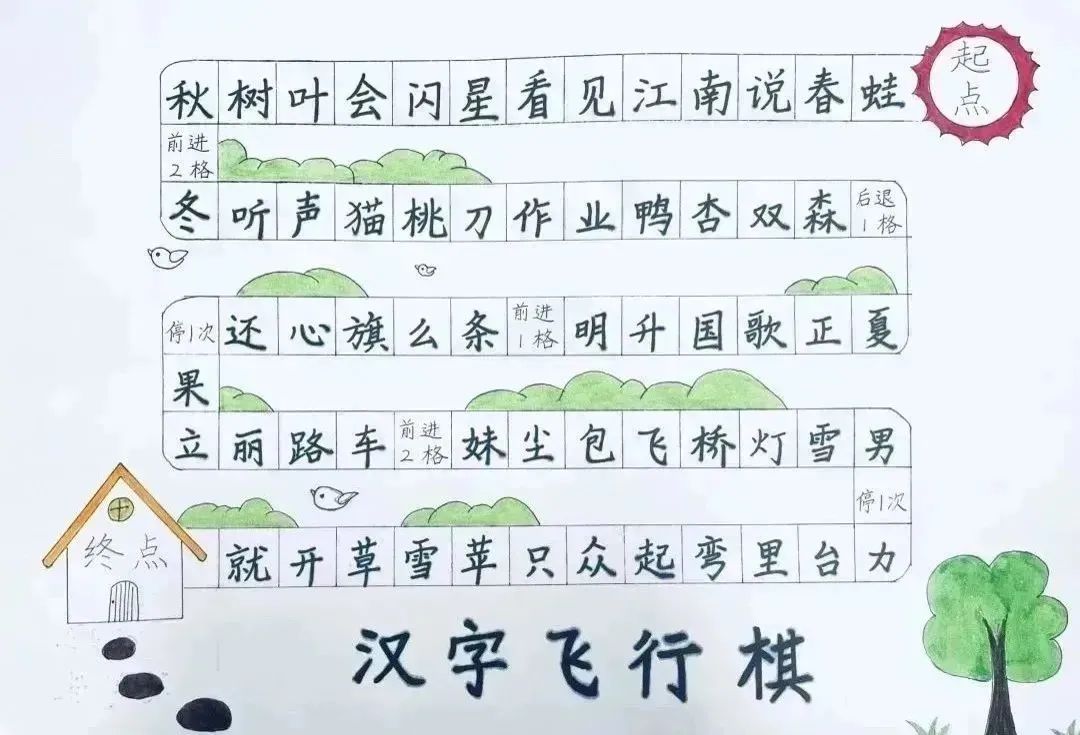 起点
秋树叶会闪星看见江南说春蛙
前进2格
冬听声猫桃刀作业鸭杏双森 后退1格
停1次 还心旗么条 前进1格 明升国歌正夏
果
立丽路车 前进2格 妹尘包飞桥灯雪男
停1次
终点 就开草雪苹只众起弯里台力
汉字飞行棋